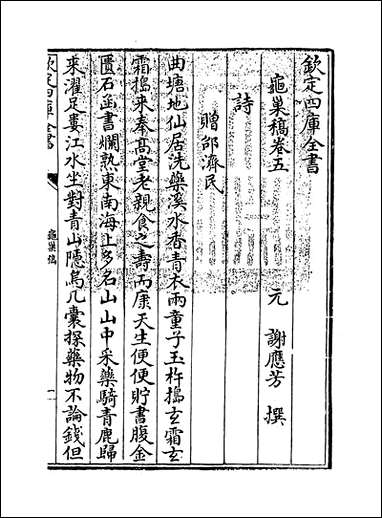 欽定四庫全書
龜巢稿卷五
元 謝應芳 撰
詩
贈邵濟民
曲塘地仙居洗藥溪水香青衣兩童子玉杵搗玄霜玄
霜搗來奉髙堂老親食之壽而康天生便便貯書腹金
匱石函書爛熟東南海上多名山山中采藥騎青鹿歸
来濯足婁江水坐對青山隱烏几囊探藥物不論錢但
欽定四庫全書
龜巢稿
一